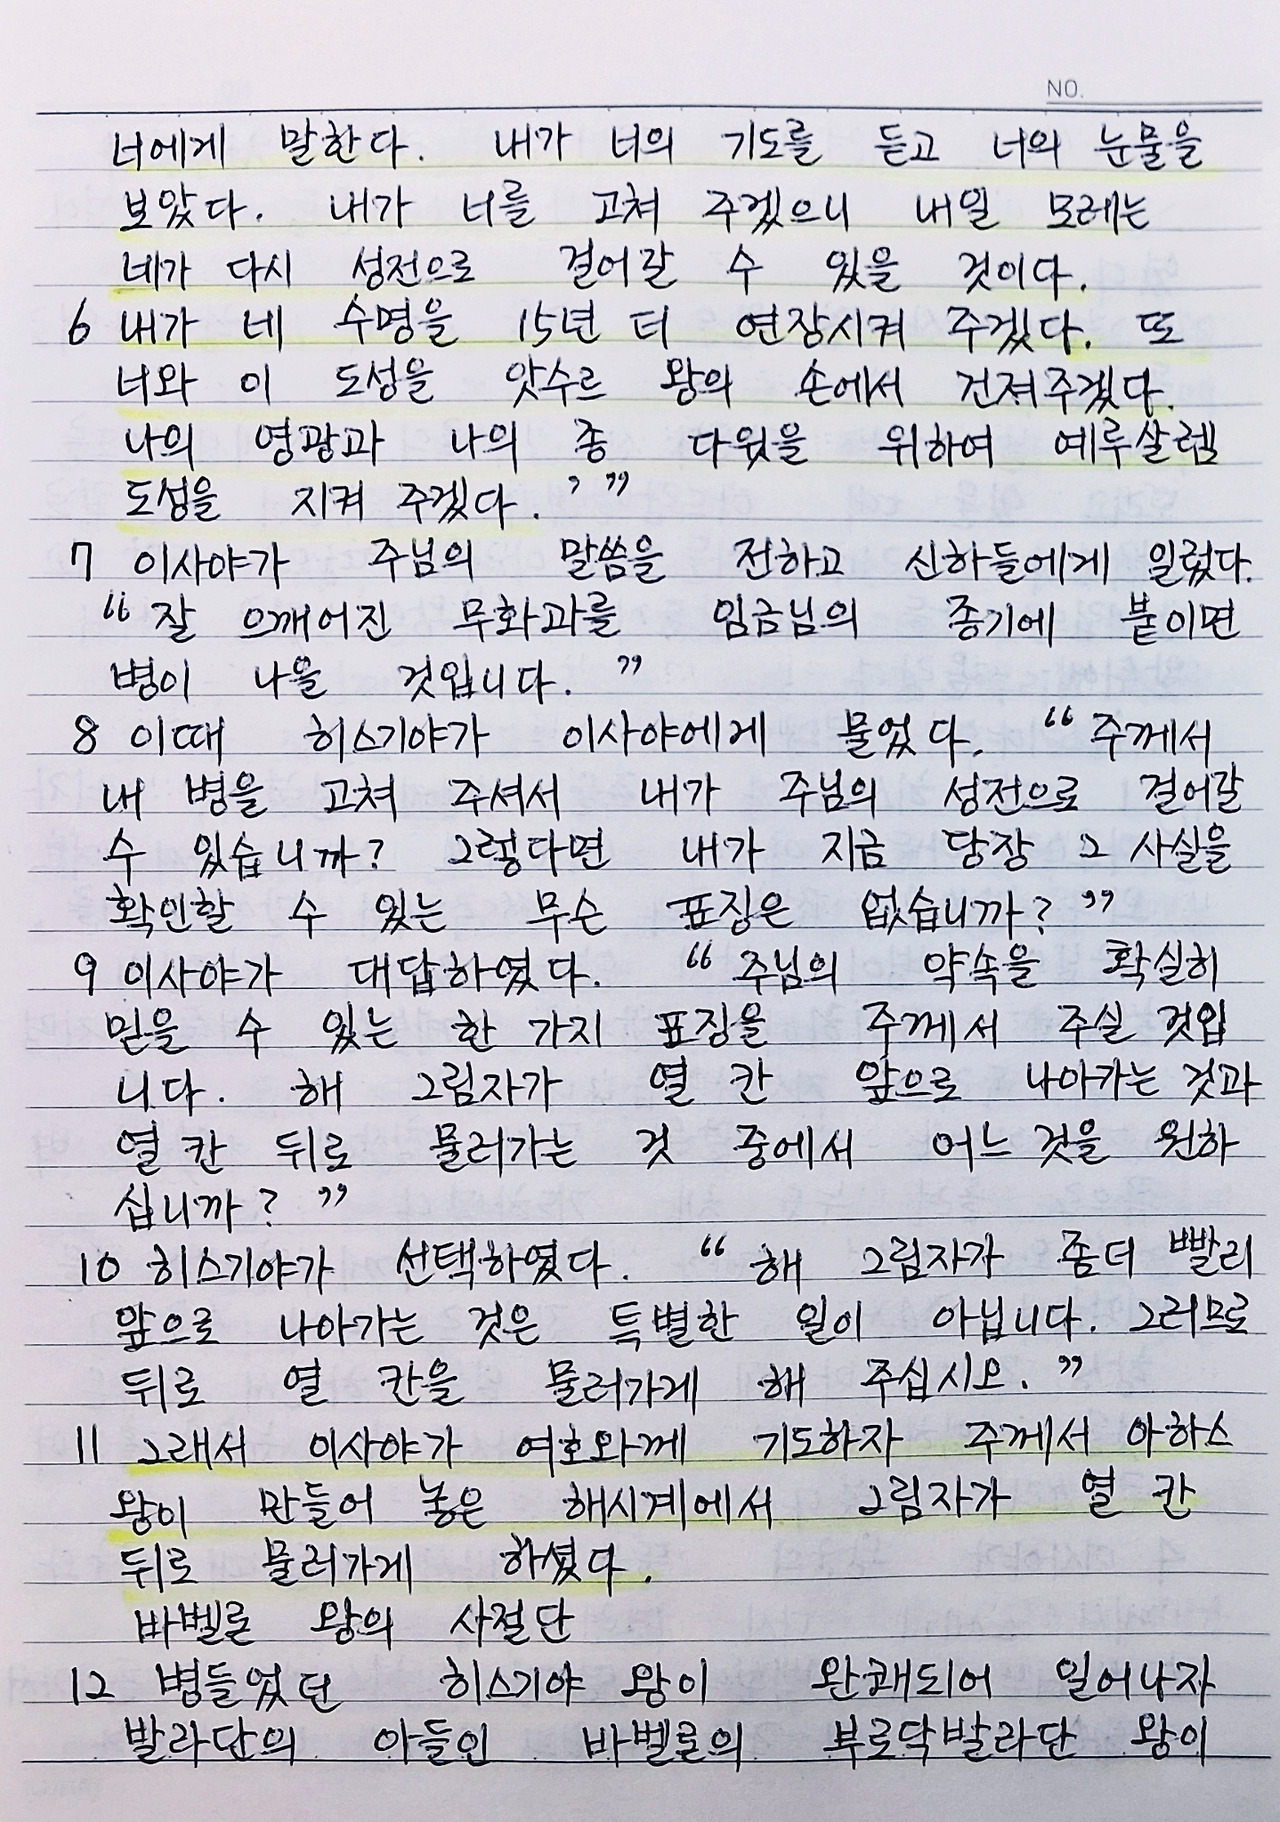 NO.
너에게 말한다. 내가 너의 기도를 듣고 너의 눈물을
보았다. 내가 너를 고쳐 주겠으니 내일 모레는
네가 다시 성전으로 걸어갈 수 있을 것이다.
6 내가 네 수명을 15년 더 연장시켜 주겠다. 또
너와 이 도성을 앗수르 왕의 손에서 건져주겠다.
나의 영광과 나의 종 다윗을 위하여 예루살렘
도성을 지켜 주겠다.’”
7 이사야가 주님의 말씀을 전하고 신하들에게 일렀다.
“잘 으깨어진 무화과를 임금님의 종기에 붙이면
병이 나을 것입니다.”
8 이때 히스기야가 이사야에게 물었다. “주께서
내 병을 고쳐 주셔서 내가 주님의 성전으로 걸어갈
수 있습니까? 그렇다면 내가 지금 당장 그 사실을
확인할 수 있는 무슨 표징은 없습니까?”
9 이사야가 대답하였다. “주님의 약속을 확실히
믿을 수 있는 한 가지 표징을 주께서 주실 것입
니다. 해 그림자가 열 칸 앞으로 나아가는 것과
열 칸 뒤로 물러가는 것 중에서 어느 것을 원하
십니까?”
10 히스기야가 선택하였다. “해 그림자가 좀더 빨리
앞으로 나아가는 것은 특별한 일이 아닙니다. 그러므로
뒤로 열 칸을 물러가게 해 주십시오.”
11 그래서 이사야가 여호와께 기도하자 주께서 아하스
왕이 만들어 놓은 해시계에서 그림자가 열 칸
뒤로 물러가게 하셨다.
바벨론 왕의 사절단
12 병들었던 히스기야 왕이 완쾌되어 일어나자
발라단의 아들인 바벨론의 부로닥발라단 왕이